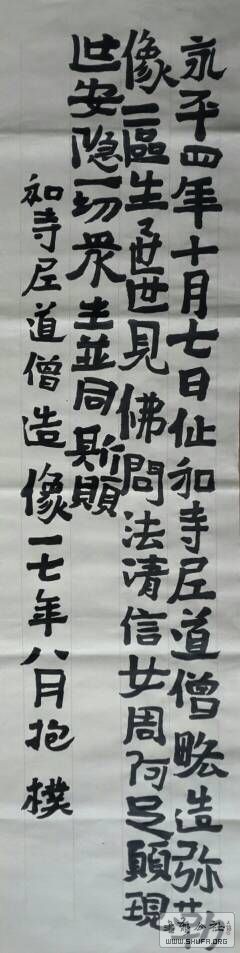 永平四年十月七日仙和寺尼道僧略造弥勒
像一區生生世世見佛問法清信女周阿足願現
世安隐一切衆生並同斯願
和寺尼道僧造像一七年八月抱樸
WWW.SHUFA.ORG